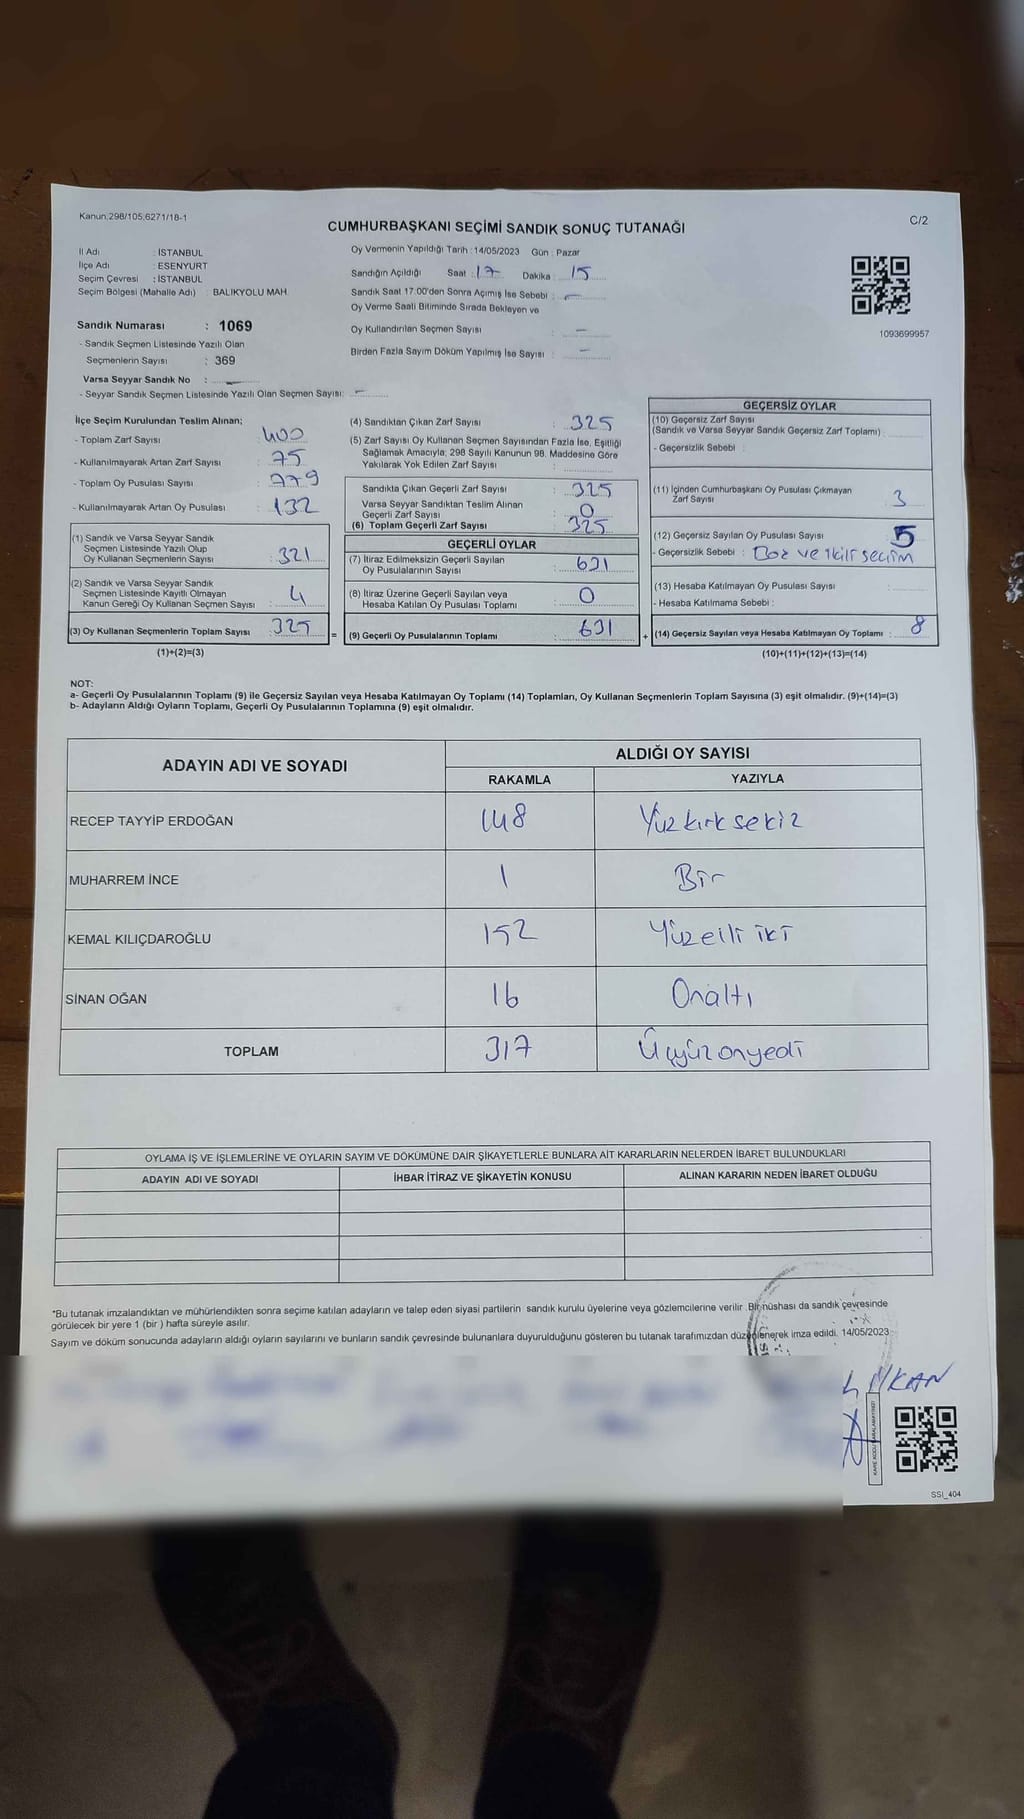 Kanun,298/105,6271/18-1
C/2
CUMHURBAŞKANI SEÇİMİ SANDIK SONUÇ TUTANAĞI
İl Adı : İSTANBUL
İlçe Adı : ESENYURT
Seçim Çevresi : İSTANBUL
Seçim Bölgesi (Mahalle Adı) : BALIKYOLU MAH.
Sandık Numarası : 1069
- Sandık Seçmen Listesinde Yazılı Olan
Seçmenlerin Sayısı : 369
Varsa Seyyar Sandık No :
- Seyyar Sandık Seçmen Listesinde Yazılı Olan Seçmen Sayısı: -
Oy Vermenin Yapıldığı Tarih : 14/05/2023 Gün : Pazar
Sandığın Açıldığı Saat : 17 Dakika : 15
Sandık Saat 17:00'den Sonra Açımış İse Sebebi : -
Oy Verme Saati Bitiminde Sırada Bekleyen ve
Oy Kullandırılan Seçmen Sayısı : -
Birden Fazla Sayım Döküm Yapılmış İse Sayısı : -
1093699957
İlçe Seçim Kurulundan Teslim Alınan;
- Toplam Zarf Sayısı : 400
- Kullanılmayarak Artan Zarf Sayısı : 75
- Toplam Oy Pusulası Sayısı : 779
- Kullanılmayarak Artan Oy Pusulası : 132
(1) Sandık ve Varsa Seyyar Sandık
Seçmen Listesinde Yazılı Olup
Oy Kullanan Seçmenlerin Sayısı : 321
(2) Sandık ve Varsa Seyyar Sandık
Seçmen Listesinde Kayıtlı Olmayan
Kanun Gereği Oy Kullanan Seçmen Sayısı : 4
(3) Oy Kullanan Seçmenlerin Toplam Sayısı : 325
(1)+(2)=(3)
(4) Sandıktan Çıkan Zarf Sayısı : 325
(5) Zarf Sayısı Oy Kullanan Seçmen Sayısından Fazla İse, Eşitliği
Sağlamak Amacıyla; 298 Sayılı Kanunun 98. Maddesine Göre
Yakılarak Yok Edilen Zarf Sayısı :
Sandıkta Çıkan Geçerli Zarf Sayısı : 325
Varsa Seyyar Sandıktan Teslim Alınan
Geçerli Zarf Sayısı : 0
(6) Toplam Geçerli Zarf Sayısı : 325
GEÇERLİ OYLAR
(7) İtiraz Edilmeksizin Geçerli Sayılan
Oy Pusulalarının Sayısı : 631
(8) İtiraz Üzerine Geçerli Sayılan veya
Hesaba Katılan Oy Pusulası Toplamı : 0
= (9) Geçerli Oy Pusulalarının Toplamı : 631 +
GEÇERSİZ OYLAR
(10) Geçersiz Zarf Sayısı
(Sandık ve Varsa Seyyar Sandık Geçersiz Zarf Toplamı) :
- Geçersizlik Sebebi :
(11) İçinden Cumhurbaşkanı Oy Pusulası Çıkmayan
Zarf Sayısı : 3
(12) Geçersiz Sayılan Oy Pusulası Sayısı : 5
- Geçersizlik Sebebi : Boz ve ikili seçim
(13) Hesaba Katılmayan Oy Pusulası Sayısı :
- Hesaba Katılmama Sebebi :
(14) Geçersiz Sayılan veya Hesaba Katılmayan Oy Toplamı : 8
(10)+(11)+(12)+(13)=(14)
NOT:
a- Geçerli Oy Pusulalarının Toplamı (9) ile Geçersiz Sayılan veya Hesaba Katılmayan Oy Toplamı (14) Toplamları, Oy Kullanan Seçmenlerin Toplam Sayısına (3) eşit olmalıdır. (9)+(14)=(3)
b- Adayların Aldığı Oyların Toplamı, Geçerli Oy Pusulalarının Toplamına (9) eşit olmalıdır.
ADAYIN ADI VE SOYADI ALDIĞI OY SAYISI
RAKAMLA YAZIYLA
RECEP TAYYİP ERDOĞAN 148 Yüzkırksekiz
MUHARREM İNCE 1 Bir
KEMAL KILIÇDAROĞLU 152 Yüzelli iki
SİNAN OĞAN 16 Onaltı
TOPLAM 317 Üçyüzonyedi
OYLAMA İŞ VE İŞLEMLERİNE VE OYLARIN SAYIM VE DÖKÜMÜNE DAİR ŞİKAYETLERLE BUNLARA AİT KARARLARIN NELERDEN İBARET BULUNDUKLARI
ADAYIN ADI VE SOYADI İHBAR İTİRAZ VE ŞİKAYETİN KONUSU ALINAN KARARIN NEDEN İBARET OLDUĞU
*Bu tutanak imzalandıktan ve mühürlendikten sonra seçime katılan adayların ve talep eden siyasi partilerin sandık kurulu üyelerine veya gözlemcilerine verilir. Bir nüshası da sandık çevresinde
görülecek bir yere 1 (bir ) hafta süreyle asılır.
Sayım ve döküm sonucunda adayların aldığı oyların sayılarını ve bunların sandık çevresinde bulunanlara duyurulduğunu gösteren bu tutanak tarafımızdan düzenlenerek imza edildi. 14/05/2023
SSI_404